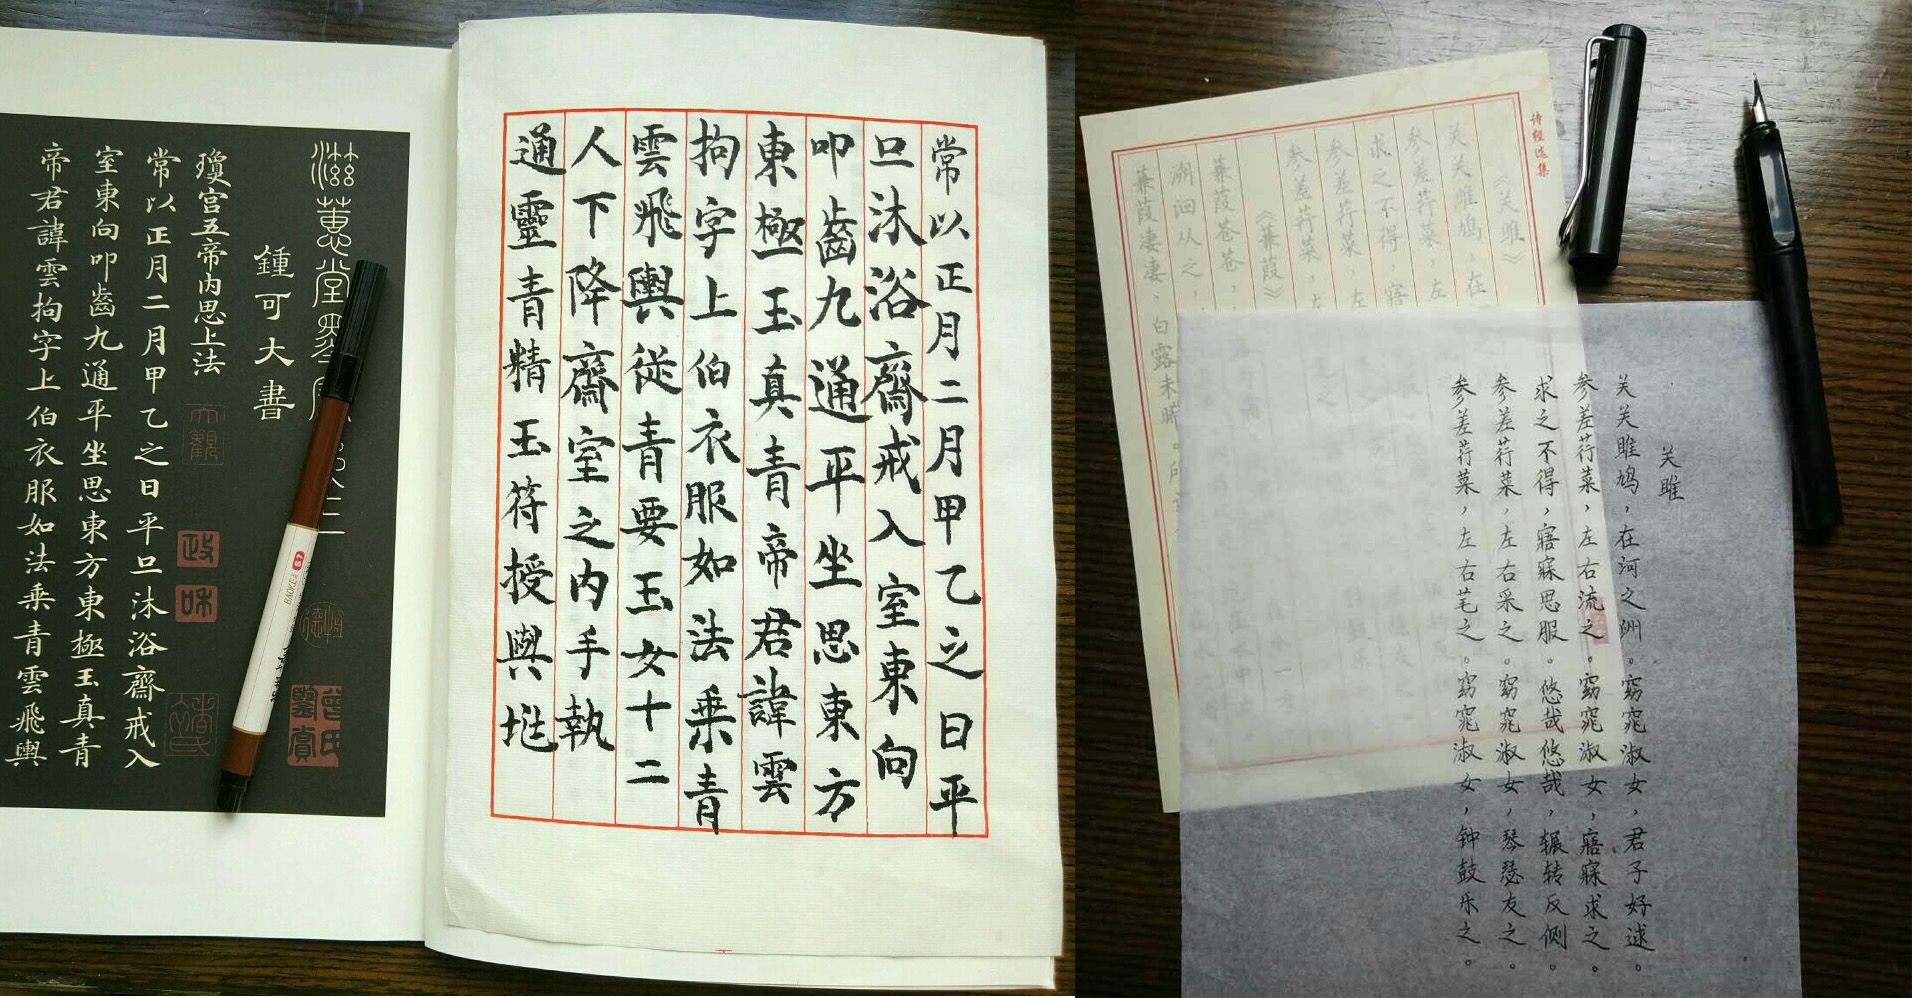 滋蕙堂墨
鍾可大書
瓊宮五帝內思上法
常以正月二月甲乙之日平旦沐浴齋戒入
室東向叩齒九通平坐思東方東極玉真青
帝君諱雲拘字上伯衣服如法乘青雲飛輿
大觀
政和
曾氏鑒賞
BAOKE S7
常以正月二月甲乙之日平
旦沐浴齋戒入室東向
叩齒九通平坐思東方
東極玉真青帝君諱雲
拘字上伯衣服如法乘青
雲飛輿從青要玉女十二
人下降齋室之內手執
通靈青精玉符授與
诗经选集
《关雎》
关关雎鸠，在
参差荇菜，左
求之不得，寤
参差荇菜，左
参差荇菜，左
《蒹葭》
蒹葭苍苍，
溯洄从之，
蒹葭凄凄，白露未晞。
关雎
关关雎鸠，在河之洲。窈窕淑女，君子好逑。
参差荇菜，左右流之。窈窕淑女，寤寐求之。
求之不得，寤寐思服。悠哉悠哉，辗转反侧。
参差荇菜，左右采之。窈窕淑女，琴瑟友之。
参差荇菜，左右芼之。窈窕淑女，钟鼓乐之。